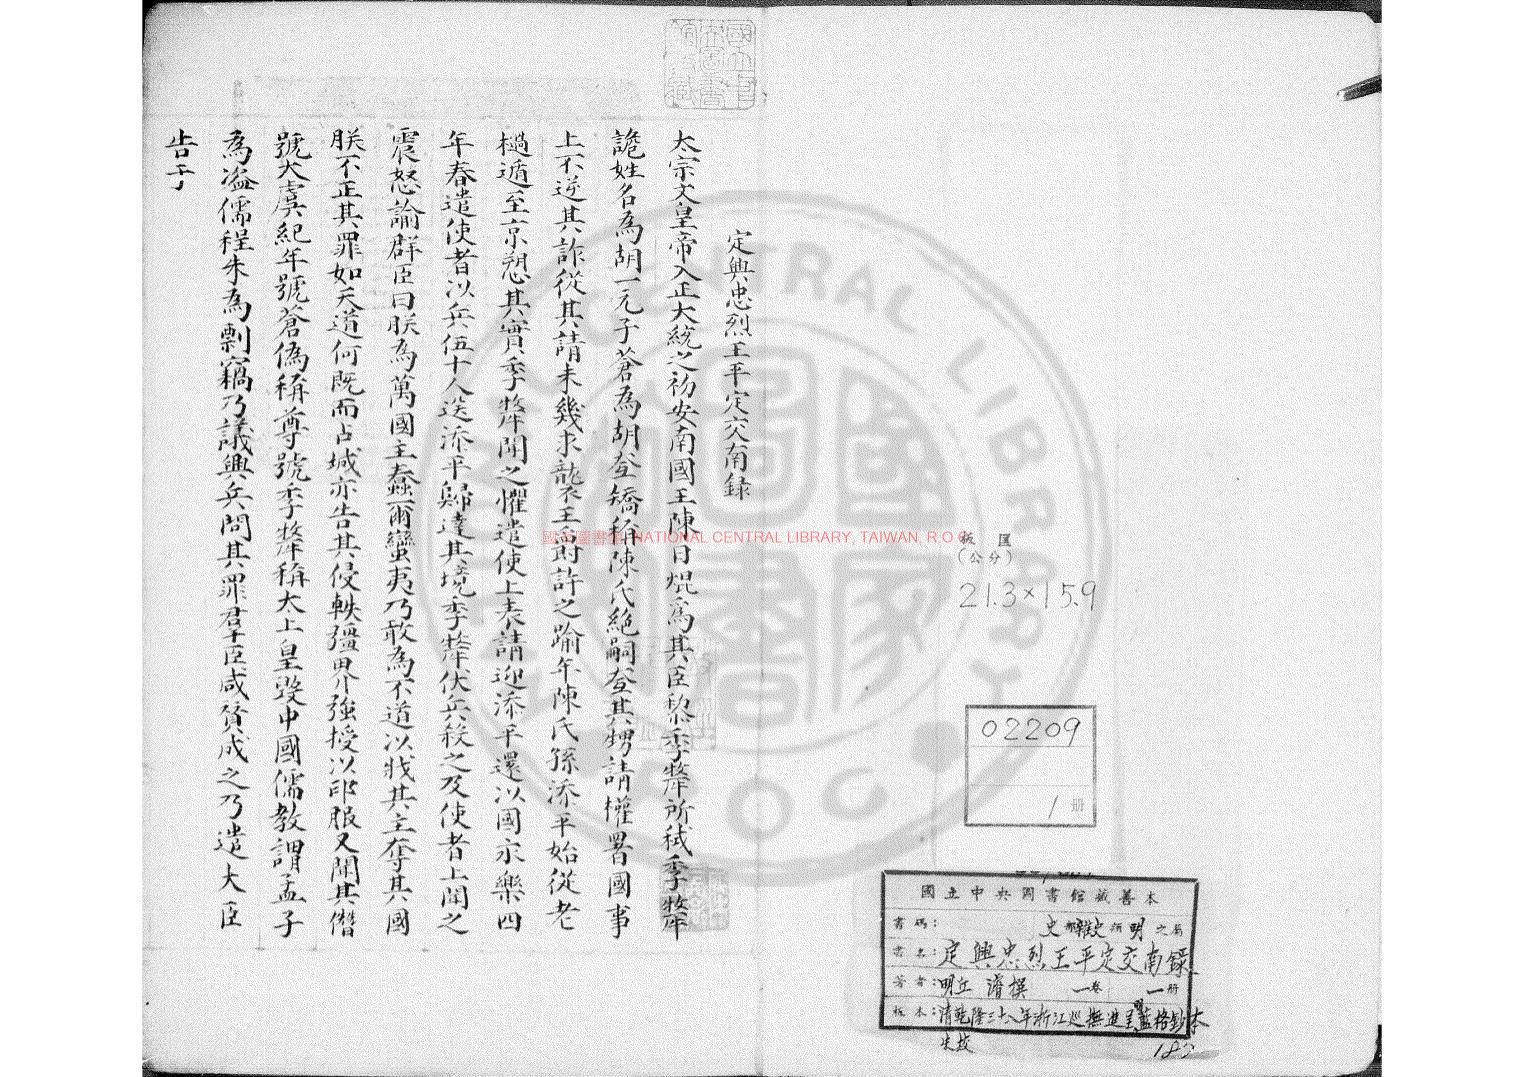 定興忠烈王平定交南錄
太宗文皇帝入正大統之初安南國王陳日焜為其臣黎季犛所弑季犛
詭姓名為胡一元子蒼為胡𡗶矯稱陳氏絕嗣𡗶其甥請權署國事
上不逆其詐從其請未幾求襲王爵許之踰年陳氏孫添平始從老
檛遁至京愬其實季犛聞之懼遣使上表請迎添平還以國永樂四
年春遣使者以兵伍十人送添平歸達其境季犛伏兵殺之及使者上聞之
震怒論群臣曰朕為萬國主蠢爾蠻夷乃敢為不道以戕其主奪其國
朕不正其罪如天道何既而占城亦告其侵軼疆界強授以印服又聞其僭
號大虞紀年號蒼偽稱尊號季犛稱太上皇毀中國儒教謂孟子
為盜儒程朱為剽竊乃議興兵問其罪君臣咸贊成之乃遣大臣
告于
板匡
(公分)
21.3×15.9
02209
1 册
國立中央圖書館藏善本
書碼：史部雜史類明之屬
書名：定興忠烈王平定交南錄
著者：明丘濬撰 一卷 一册
板本：清乾隆三十八年浙江巡撫進呈明藍格鈔本
朱校
國家圖書館 NATIONAL CENTRAL LIBRARY, TAIWAN, R.O.C
NATIONAL CENTRAL LIBRARY
ROC